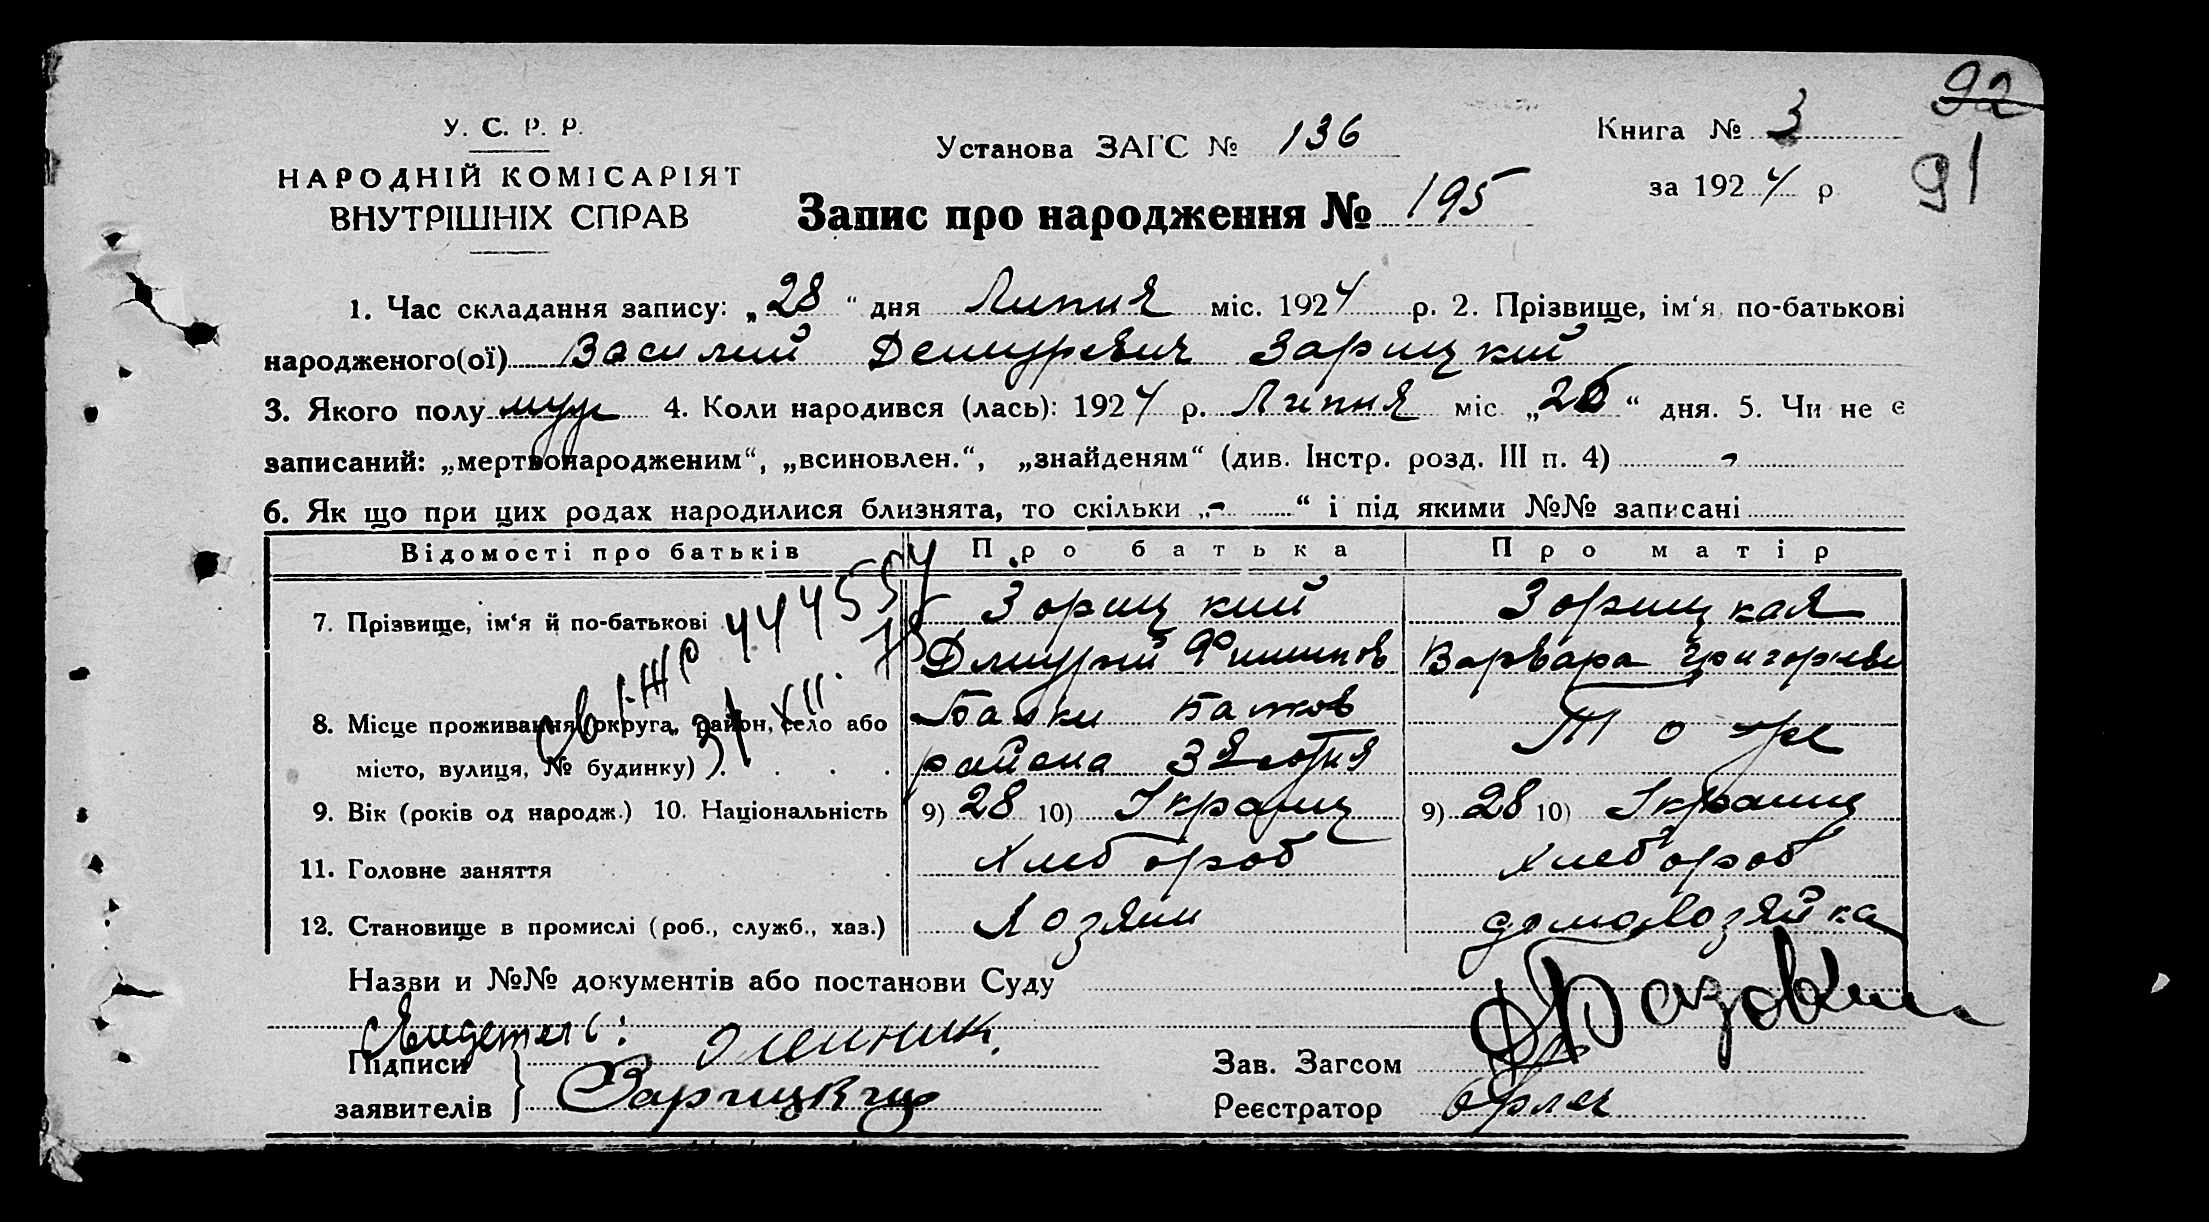 92
91
У. С. Р. Р.
НАРОДНІЙ КОМІСАРІЯТ
ВНУТРІШНІХ СПРАВ
Установа ЗАГС № 136
Книга № 3
за 1924 р
Запис про народження № 195
1. Час складання запису: „28“ дня Липня міс. 1924 р. 2. Прізвище, ім‘я, по-батькові
народженого(ої) Василий Демитревич Зарицкий
3. Якого полу муж 4. Коли народився (лась): 1924 р. Липня міс. „26“ дня. 5. Чи не є
записаний: „мертвонародженим“, „всиновлен.“, „знайденям“ (див. Інстр. розд. III п. 4) -
6. Як що при цих родах народилися близнята, то скільки „-“ і під якими №№ записані
Відомості про батьків Про батька Про матір
7. Прізвище, ім‘я й по-батькові Зорицкий Зорицкая
Дмитрий Варвара Григорьев
8. Місце проживання (округа, район, село або Балки
місто, вулиця, № будинку) района Тоже
9. Вік (років од народж.) 10. Національність 9) 28 10) Украин 9) 28 10) Украин
11. Головне заняття Хлебороб Хлебороб
12. Становище в промислі (роб., служб., хаз.) Хозяин домохозяйка
Св І-ЖР 444554
31 XII.
Назви и №№ документів або постанови Суду
Свидетель: Олейник.
Підписи
заявителів Зарицкий
Зав. Загсом
Реєстратор